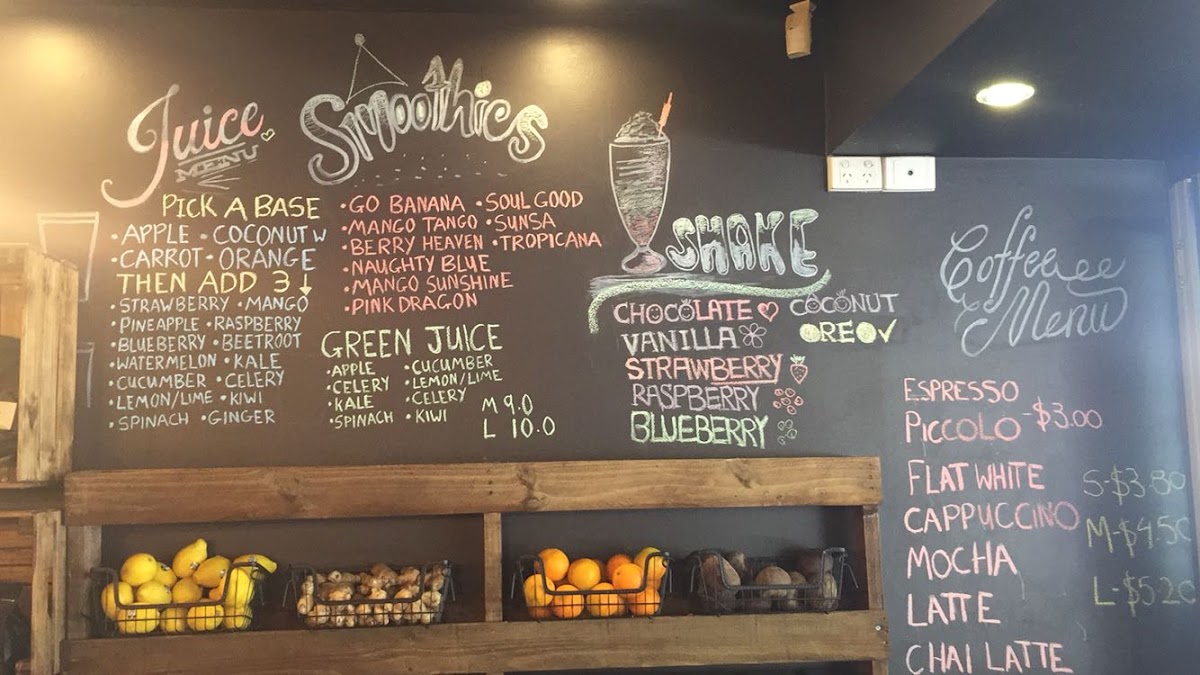 Juice
MENU
PICK A BASE
• APPLE • COCONUT W
• CARROT • ORANGE
THEN ADD 3 ↓
• STRAWBERRY • MANGO
• PINEAPPLE • RASPBERRY
• BLUEBERRY • BEETROOT
• WATERMELON • KALE
• CUCUMBER • CELERY
• LEMON/LIME • KIWI
• SPINACH • GINGER
Smoothies
• GO BANANA • SOUL GOOD
• MANGO TANGO • SUNSA
• BERRY HEAVEN • TROPICANA
• NAUGHTY BLUE
• MANGO SUNSHINE
• PINK DRAGON
GREEN JUICE
• APPLE • CUCUMBER
• CELERY • LEMON/LIME
• KALE • CELERY
• SPINACH • KIWI
M 9.0
L 10.0
SHAKE
CHOCOLATE COCONUT
VANILLA OREO
STRAWBERRY
RASPBERRY
BLUEBERRY
Coffee
Menu
ESPRESSO
PICCOLO - $3.00
FLAT WHITE S - $3.80
CAPPUCCINO M - $4.50
MOCHA
LATTE L - $5.20
CHAI LATTE